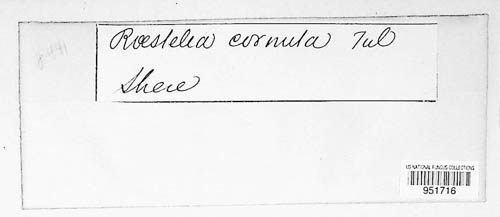 Roestelia cornuta Tul
Shere
US NATIONAL FUNGUS COLLECTIONS
951716